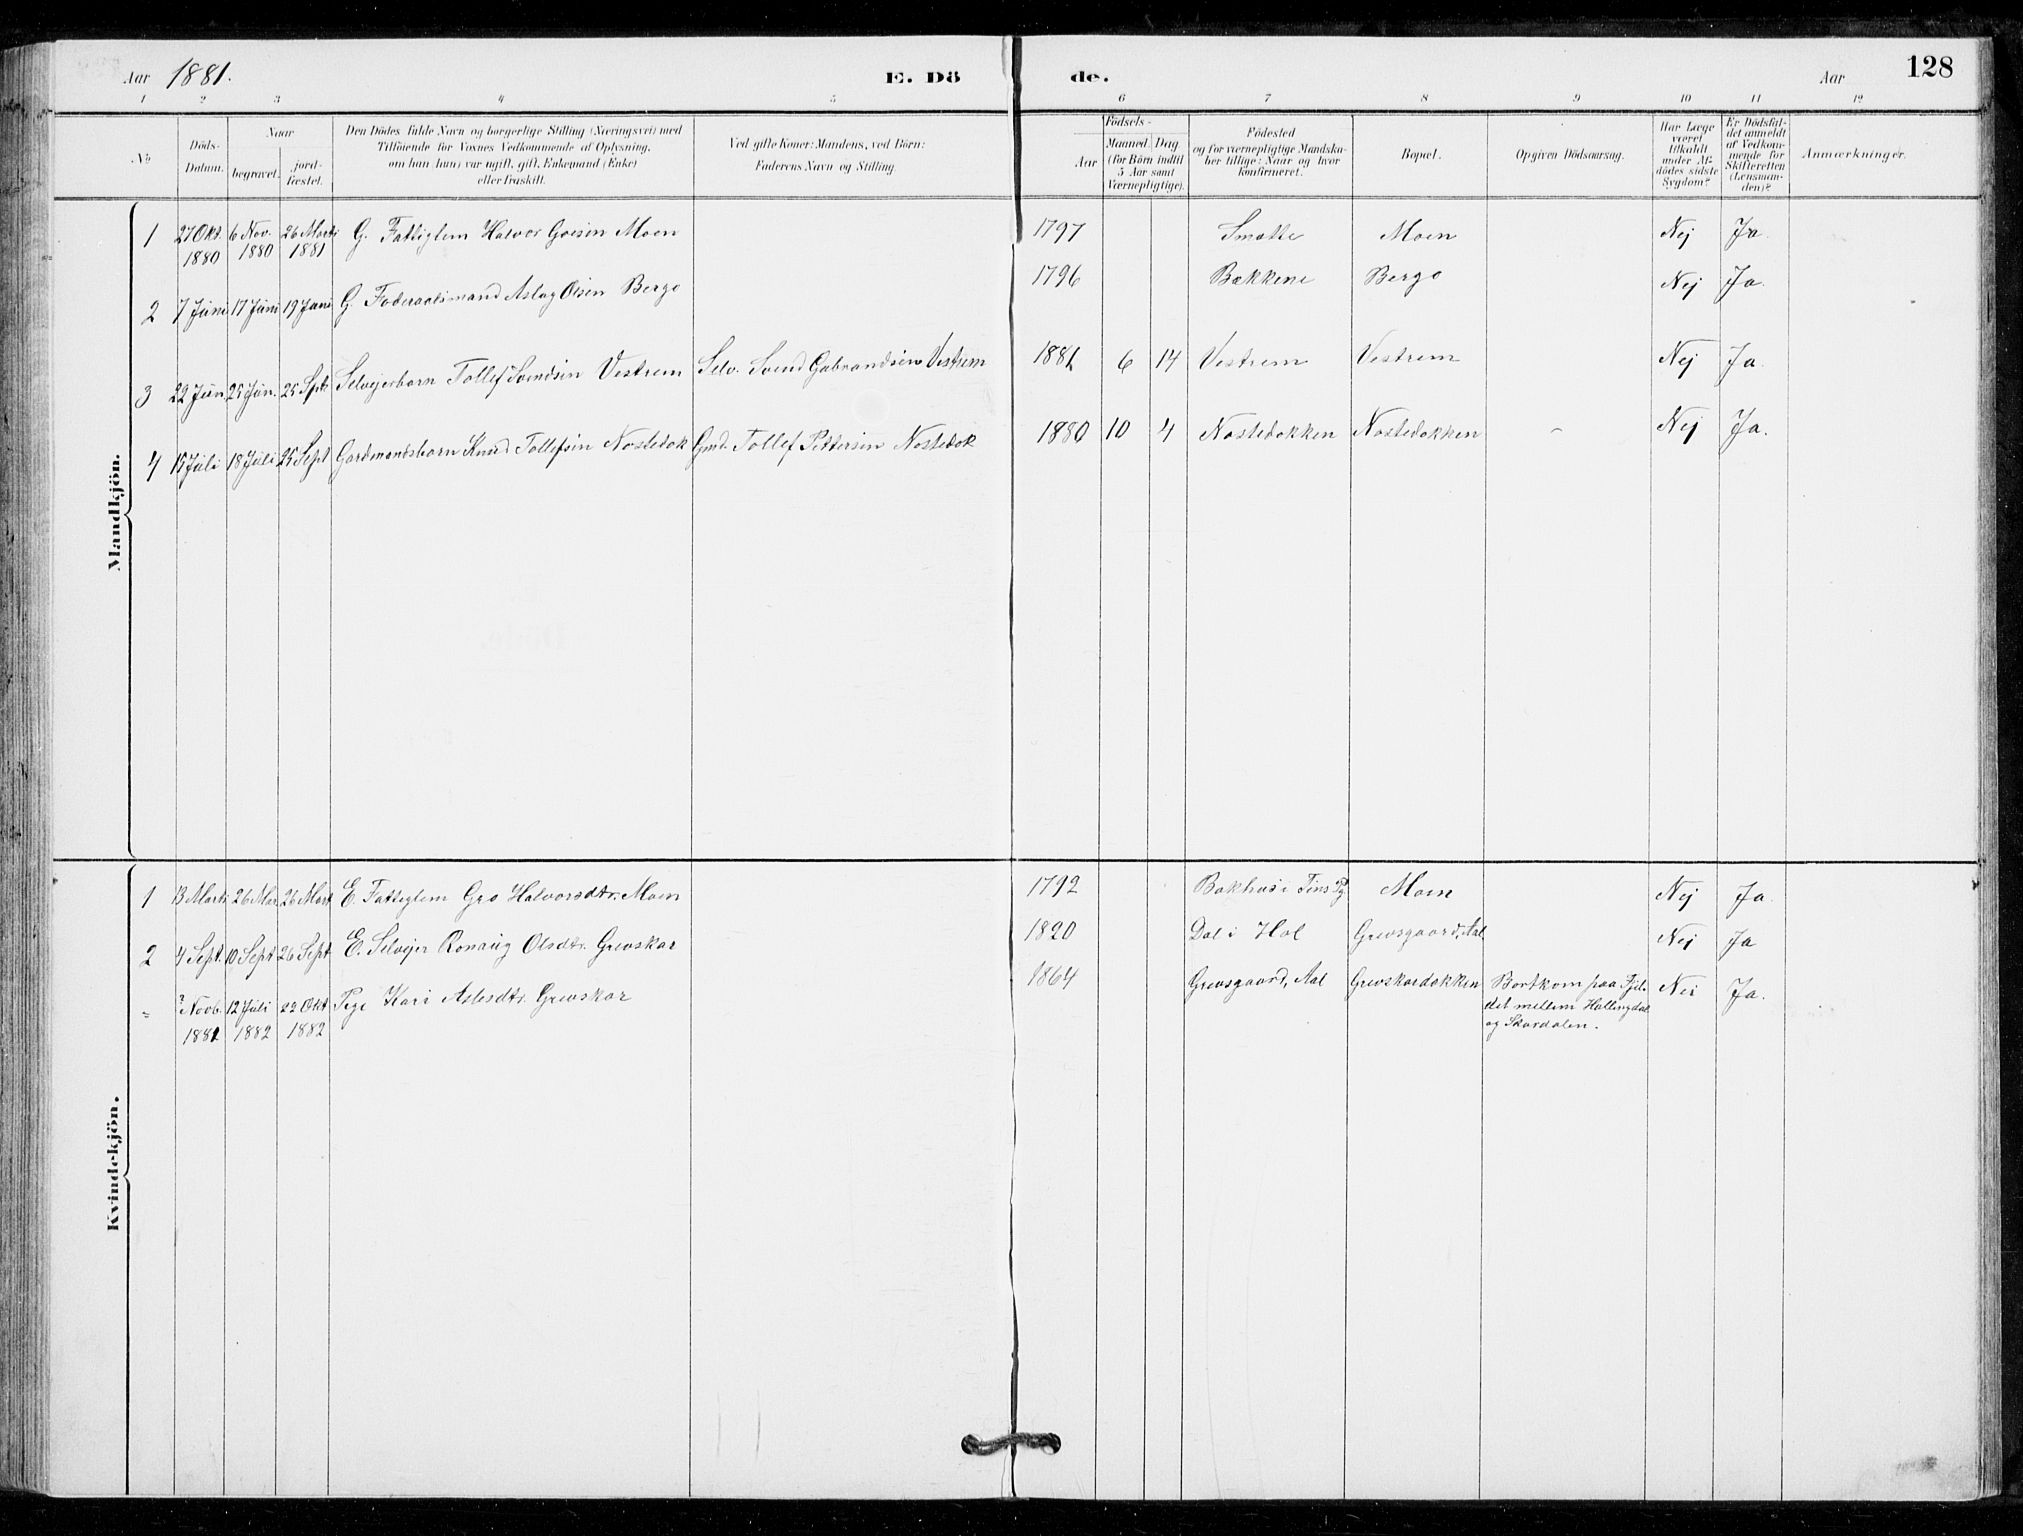 Aar 1881. E. Dö de. Aar 128
1 2 3 4 5 6 7 8 9 10 11 12
No
Döds-
Datum.
Naar
begravet.
jord-
fæstet.
Den Dödes fulde Navn og borgerlige Stilling (Næringsvei) med
Tilföiende for Voxnes Vedkommende af Oplysning,
om han (hun) var ugift, gift, Enkemand (Enke)
eller fraskilt.
Ved gifte Koner: Mandens, ved Börn:
Faderens Navn og Stilling.
Födsels-
Aar
Maaned. Dag
(for Börn indtil
5 Aar samt
Værnepligtige).
Födested
og for værnepligtige Mandska-
ber tillige: Naar og hvor
konfirmeret.
Bopæl.
Opgiven Dödsaarsag.
Har Læge
været
tilkaldt
under Af-
dödes sidste
Sygdom?
Er Dödsfal-
det anmeldt
af Vedkom-
mende for
Skifteretten
(Lensman-
den)?
Anmærkninger.
Mandkjön.
1 27 Okt. 6 Nov. 26 Marts G. Fattiglem Halvor Moen 1797 Smette Moen Nej Ja.
1880 1880 1881
2 7 Juni 17 Juni 19 Juni G. Foderaadsmand Aslag Olsen Bergo 1796 Bakkene Bergo Nej Ja.
3 22 Jun. 25 Jun. 25 Spt. Selveierbarn Tollef Svendsen Vestrem Selv. Svend Gubrandsen Vestrem 1881 6 14 Vestrem Vestrem Nej Ja.
4 15 Juli 18 Juli 25 Sept Gardmandsbarn Knud Tollefsen Nostedok Gmd. Tollef Pettersen Nostedok 1880 10 4 Nostedokken Nostedokken - Nej Ja.
Kvindekjön.
1 13 Marts 26 Mar. 26 Mart E. Fattiglem Gro Halvorsdtr. Moen 1792 Bakhus i Tins Pg. Moen Nej Ja.
2 4 Sept. 10 Sept 26 Sept E. Selvejer Ronaug Olsdtr. Grevskar 1820 Dal i Hol Grevsgaard, Aal Nej Ja
" ? Novb. 12 Juli 22 Okt. Pige Kari Aslesdtr. Grevskar 1864 Grevsgaard, Aal Grevskardokken Bortkom paa Fjel- Nei Ja.
1881 1882 1882 det mellem Hallingdal
og Skurdalen.